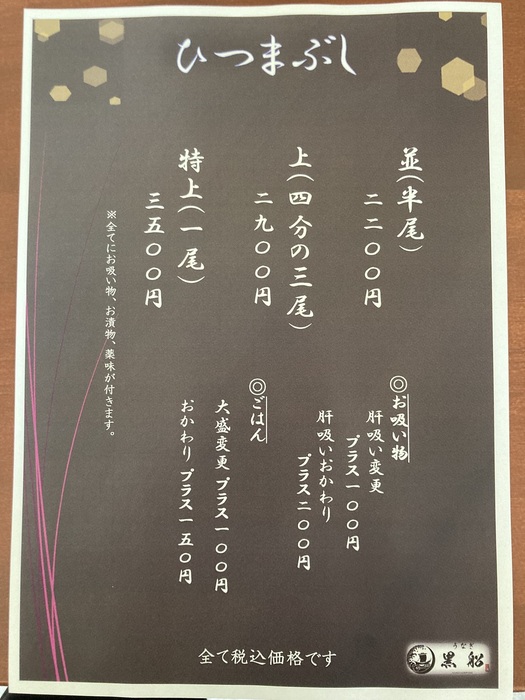 ひつまぶし
並(半尾)
二二〇〇円
上(四分の三尾)
二九〇〇円
特上(一尾)
三五〇〇円
※全てにお吸い物、お漬物、薬味が付きます。
◎お吸い物
肝吸い変更
プラス一〇〇円
肝吸いおかわり
プラス二〇〇円
◎ごはん
大盛変更 プラス一〇〇円
おかわり プラス一五〇円
全て税込価格です
うなぎ
黒船